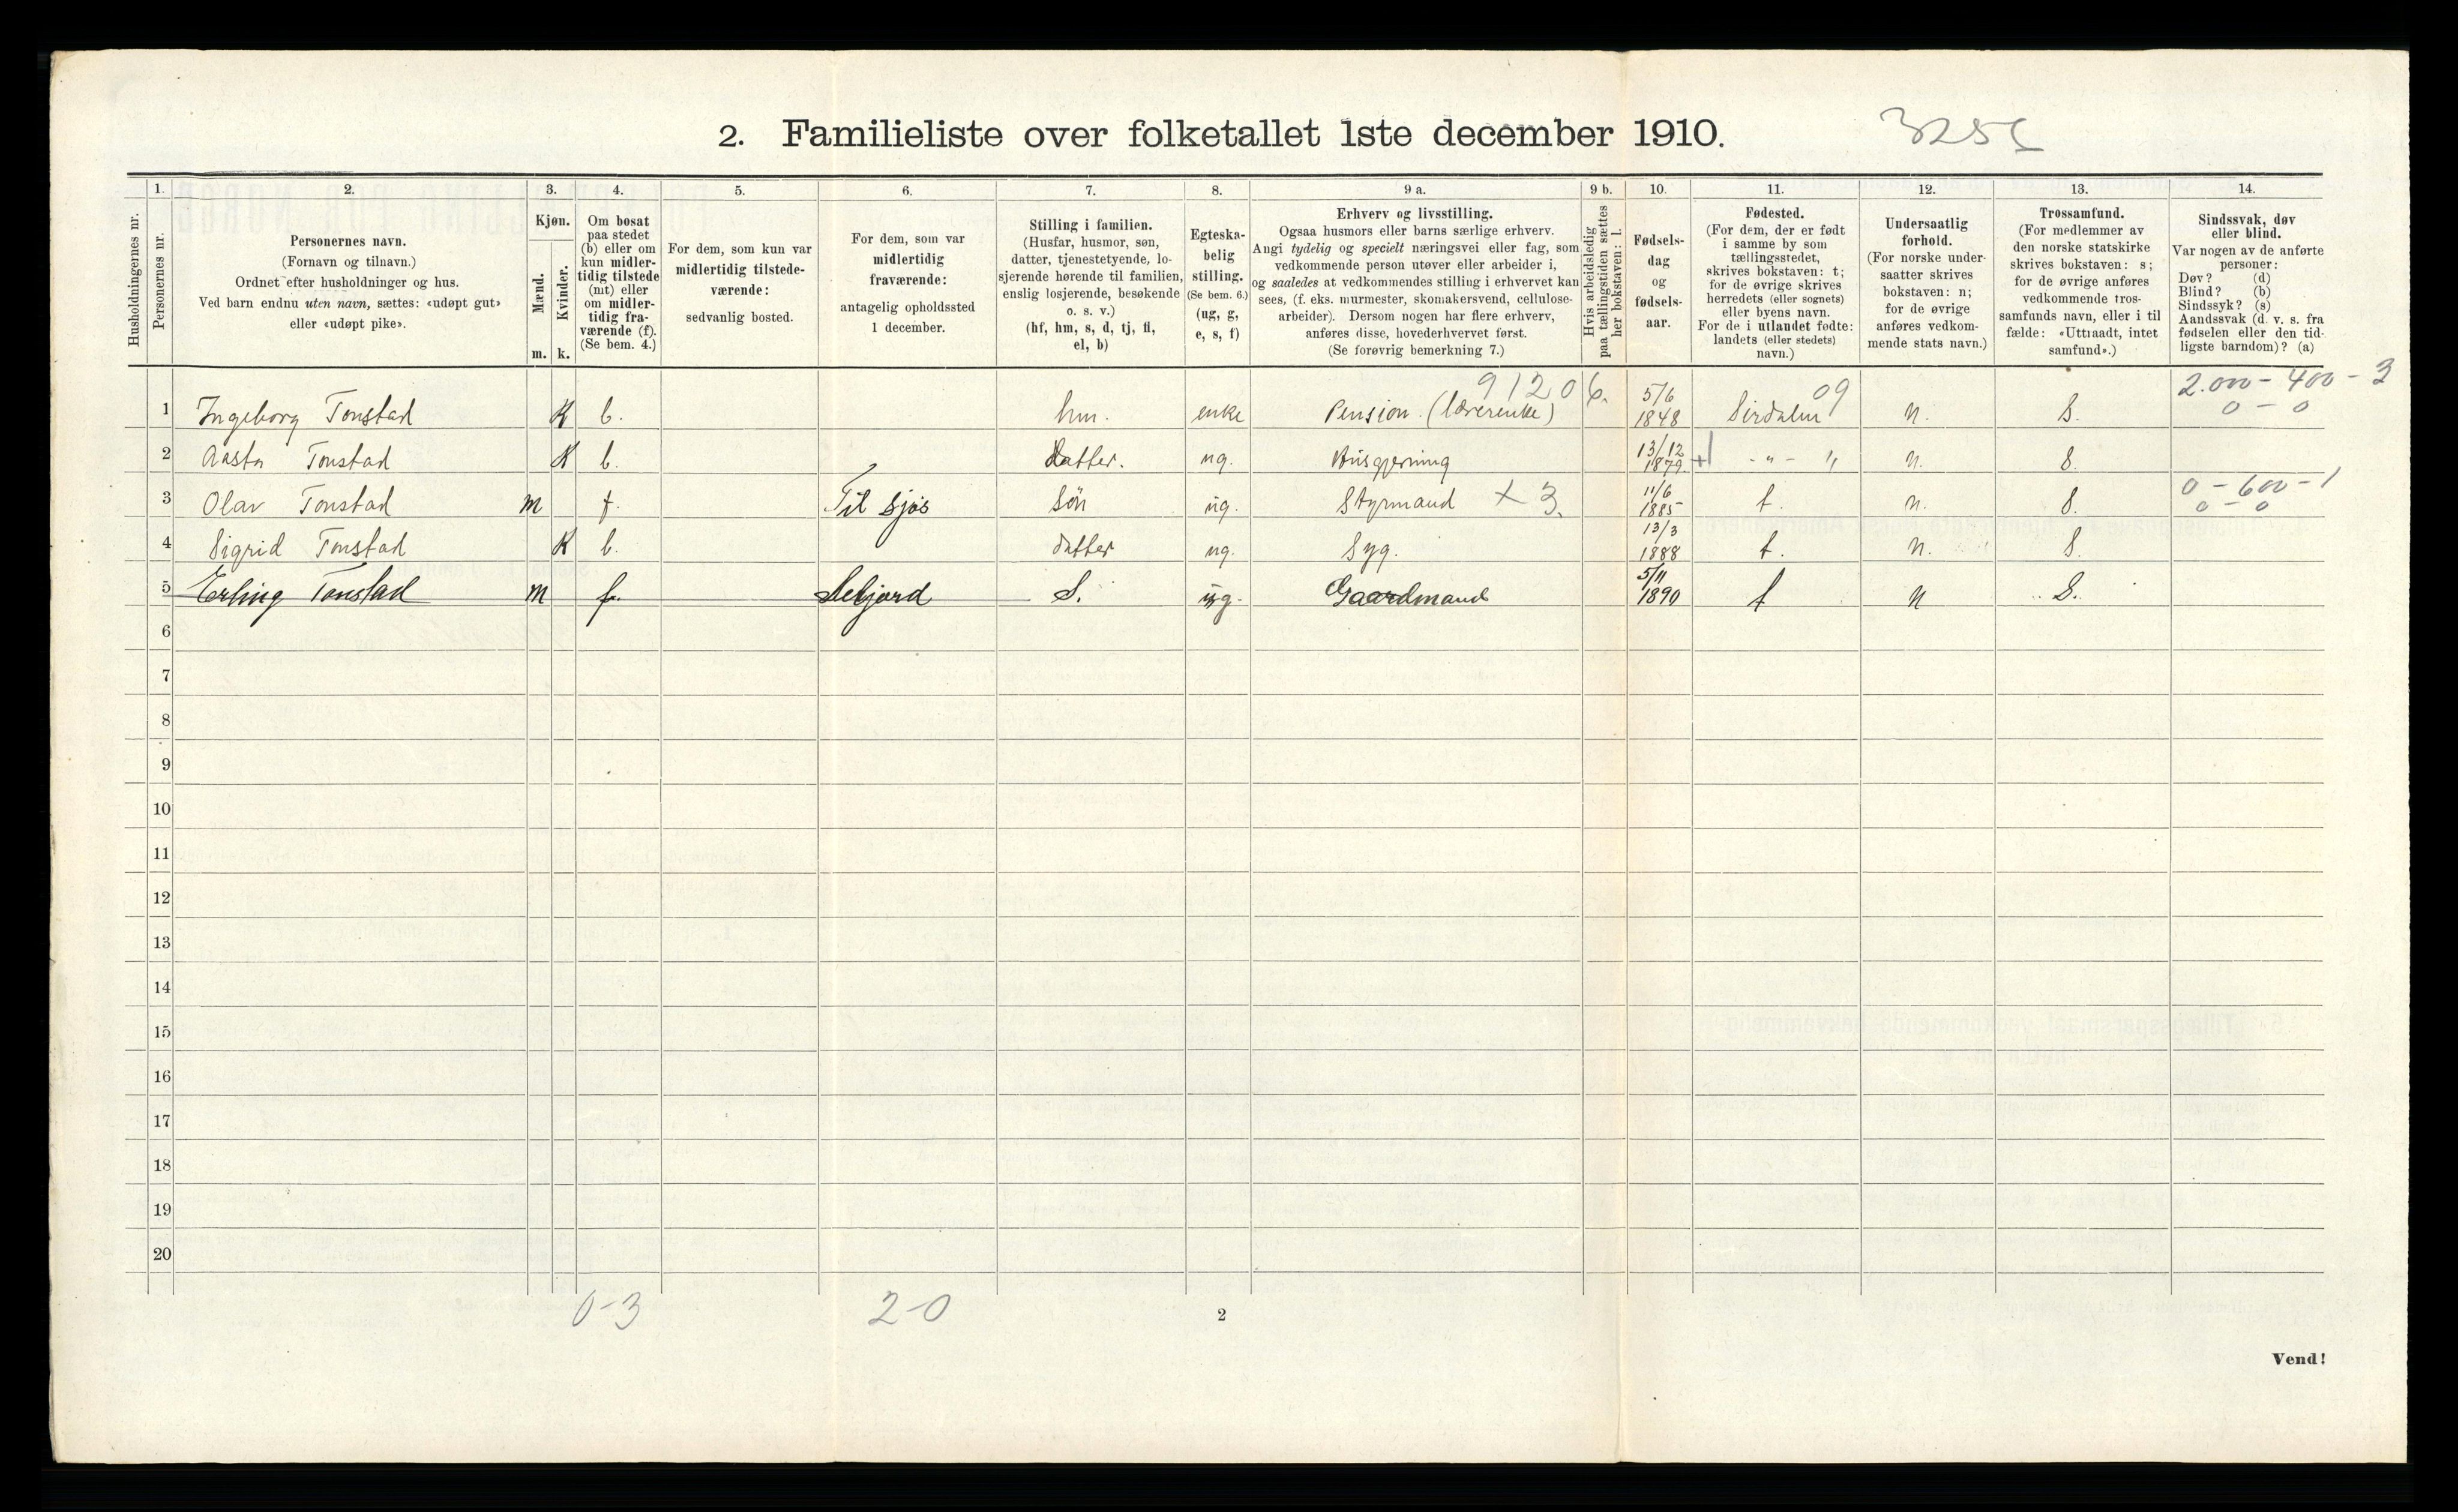 2. Familieliste over folketallet 1ste december 1910.
3255
1. 2. 3. 4. 5. 6. 7. 8. 9 a. 9 b. 10. 11. 12. 13. 14.
Husholdningernes nr.
Personernes nr.
Personernes navn.
(Fornavn og tilnavn.)
Ordnet efter husholdninger og hus.
Ved barn endnu uten navn, sættes: «udøpt gut»
eller «udøpt pike».
Kjøn.
Mænd.
Kvinder.
m. k.
Om bosat
paa stedet
(b) eller om
kun midler-
tidig tilstede
(mt) eller
om midler-
tidig fra-
værende (f).
(Se bem. 4.)
For dem, som kun var
midlertidig tilstede-
værende:
sedvanlig bosted.
For dem, som var
midlertidig
fraværende:
antagelig opholdssted
1 december.
Stilling i familien.
(Husfar, husmor, søn,
datter, tjenestetyende, lo-
sjerende hørende til familien,
enslig losjerende, besøkende
o. s. v.)
(hf, hm, s, d, tj, fl,
el, b)
Egteska-
belig
stilling.
(Se bem. 6.)
(ug, g,
e, s, f)
Erhverv og livsstilling.
Ogsaa husmors eller barns særlige erhverv.
Angi tydelig og specielt næringsvei eller fag, som
vedkommende person utøver eller arbeider i,
og saaledes at vedkommendes stilling i erhvervet kan
sees, (f. eks. murmester, skomakersvend, cellulose-
arbeider). Dersom nogen har flere erhverv,
anføres disse, hovederhvervet først.
(Se forøvrig bemerkning 7.)
Hvis arbeidsledig
paa tællingstiden sættes
her bokstaven: l.
Fødsels-
dag
og
fødsels-
aar.
Fødested.
(For dem, der er født
i samme by som
tællingsstedet,
skrives bokstaven: t;
for de øvrige skrives
herredets (eller sognets)
eller byens navn.
For de i utlandet fødte:
landets (eller stedets)
navn.)
Undersaatlig
forhold.
(For norske under-
saatter skrives
bokstaven: n;
for de øvrige
anføres vedkom-
mende stats navn.)
Trossamfund.
(For medlemmer av
den norske statskirke
skrives bokstaven: s;
for de øvrige anføres
vedkommende tros-
samfunds navn, eller i til
fælde: «Uttraadt, intet
samfund».)
Sindssvak, døv
eller blind.
Var nogen av de anførte
personer:
Døv? (d)
Blind? (b)
Sindssyk? (s)
Aandssvak (d. v. s. fra
fødselen eller den tid-
ligste barndom)? (a)
91206. 09 2.000 - 400 - 3
1 Ingeborg Tonstad K b. hm. enke Pension. (lærerenke) 5/6 1848 Sirdalen n. S. 0 - 0
2 Aasta Tonstad K b. Datter. ug. Husgjerning 13/12 1879 + - " - " n. S.
3 Olav Tonstad m f. Til sjøs Søn ug. Styrmand x 3. 11/6 1885 t. n. S. 0 - 600 - 1 0 - 0
4 Sigrid Tonstad K b. datter ug. Syg. 13/3 1888 t. n. S.
5 Erling Tonstad m f. Seljord S. ug. Gaardmand 5/11 1890 t n S.
6
7
8
9
10
11
12
13
14
15
16
17
18
19
20
0-3 2-0 2
Vend!